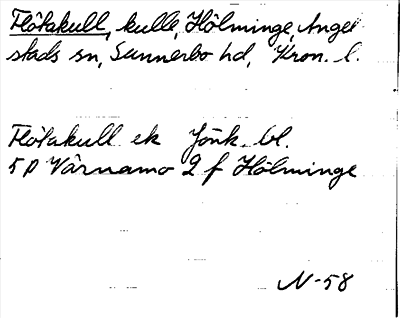 Flötakull, kulle, Hölminge, Angel
stads sn, Sunnerbo hd, Kron. l.
Flötakull ek Jönk. bl.
5 p Värnamo 2 f Hölminge
N-58